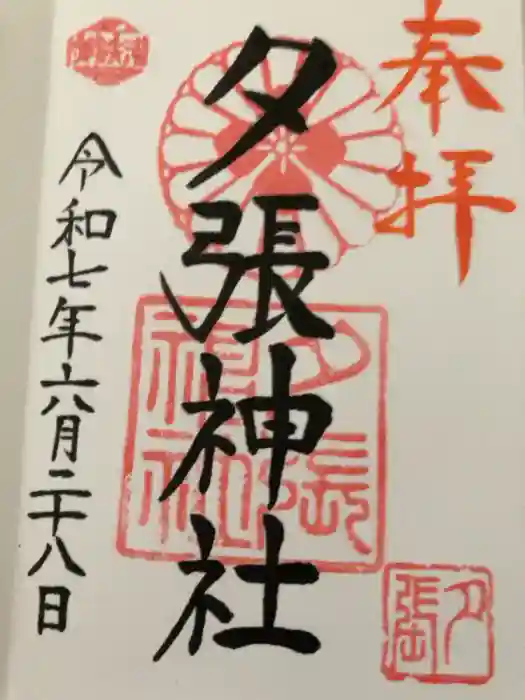 奉拝
夕張神社
令和七年六月二十八日
夕張
神社
夕張